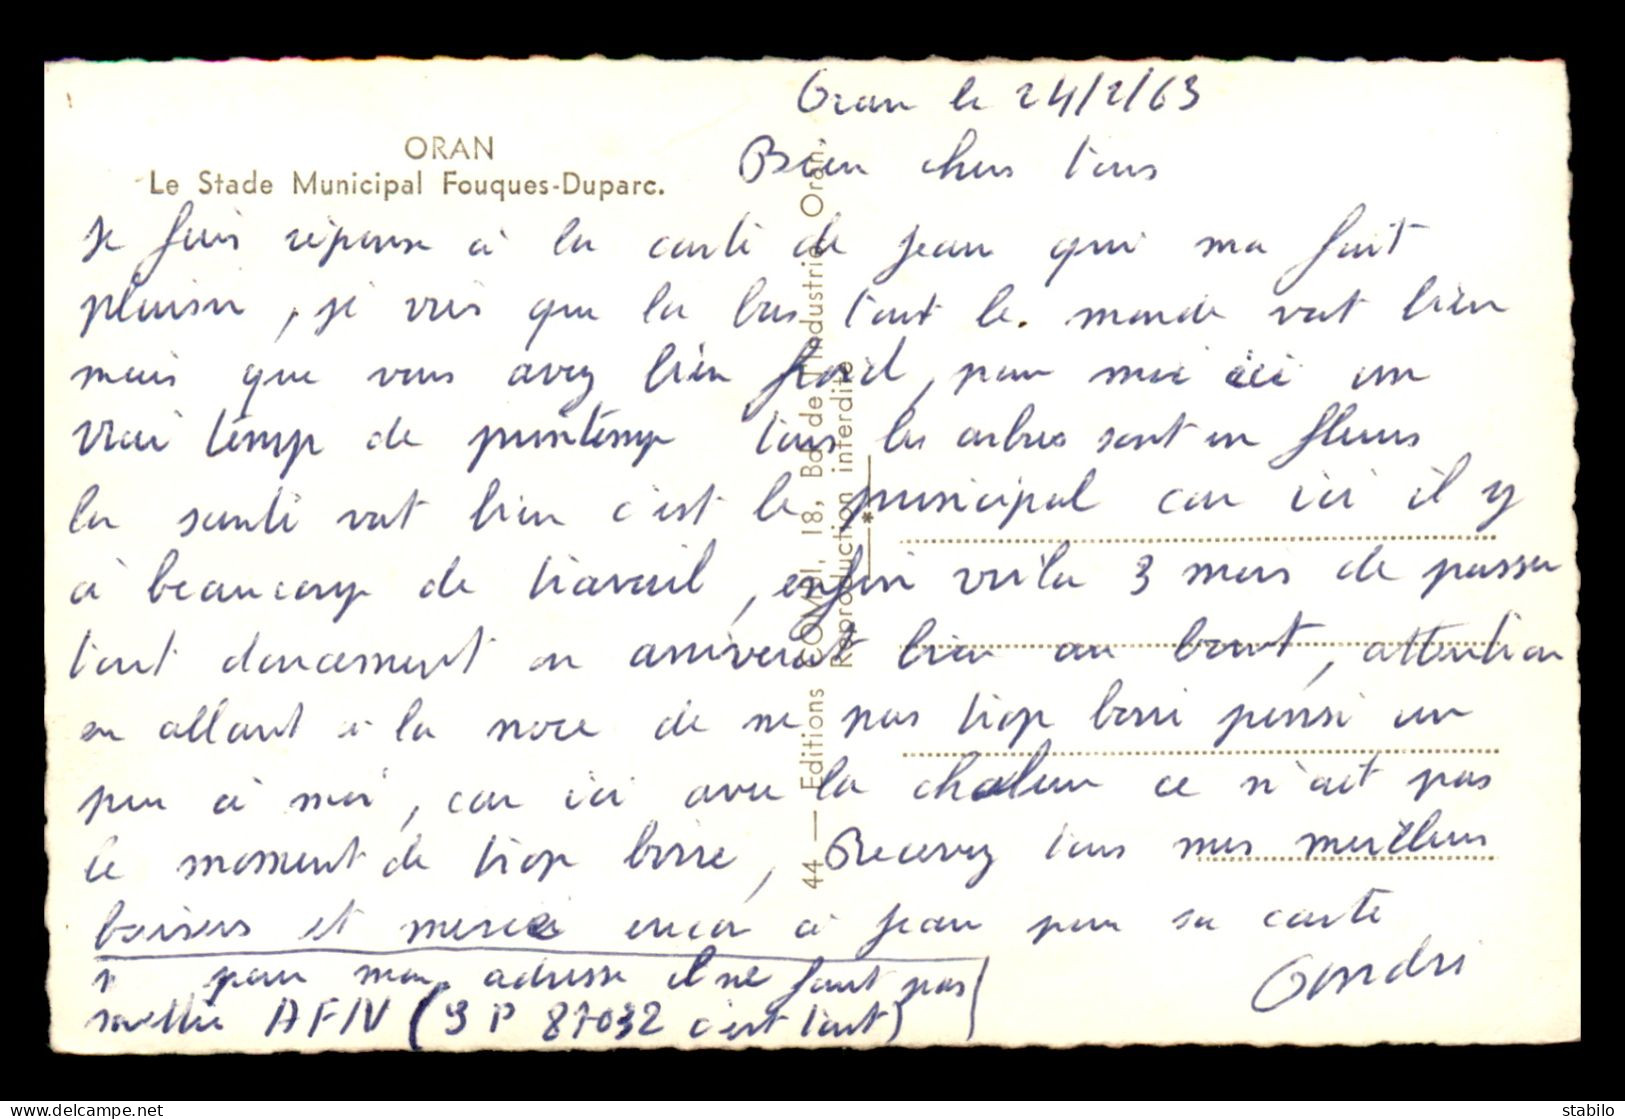 Oran le 24/2/63
ORAN
Le Stade Municipal Fouques-Duparc.
Bien chers tous
Je fais réponse à la carte de Jean qui ma fait
plaisir, je vois que la bas tout le monde vat bien
mais que vous avez bien froid, pour moi ici un
vrai temp de printemp tous les arbres sont en fleurs
la santé vat bien c'est le principal car ici il y
à beaucoup de travail, enfin voila 3 mois de passer
tout doucement on arriverat bien au bout, attention
en allant à la noce de ne pas trop boire pensé un
peu à moi, car ici avec la chaleur ce n'ait pas
le moment de trop boire, Recevez tous mes meilleurs
baisers et merci encor à Jean pour sa carte
André
pour mon adresse il ne faut pas
mettre AFN (SP 87032 c'est tout)
44 — Editions COMBI, 18, Bd de l'Industrie, Oran.
Reproduction interdite